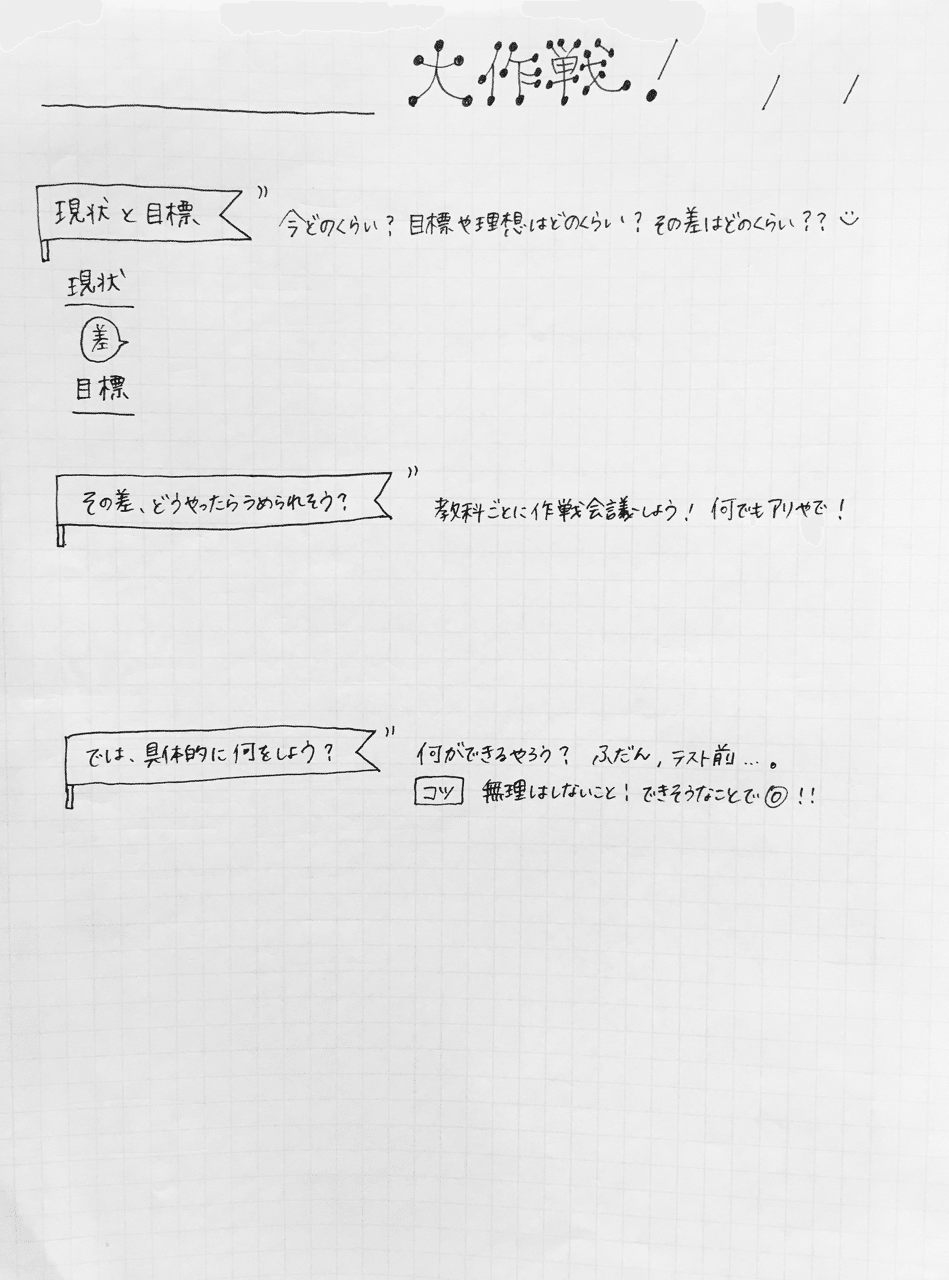 大作戦!
/ /
現状と目標
今どのくらい?目標や理想はどのくらい?その差はどのくらい??
現状
差
目標
その差、どうやったらうめられそう?
教科ごとに作戦会議しよう!何でもアリやで!
では、具体的に何をしよう?
何ができるやろう?ふだん,テスト前…。
コツ 無理はしないこと!できそうなことで◎!!